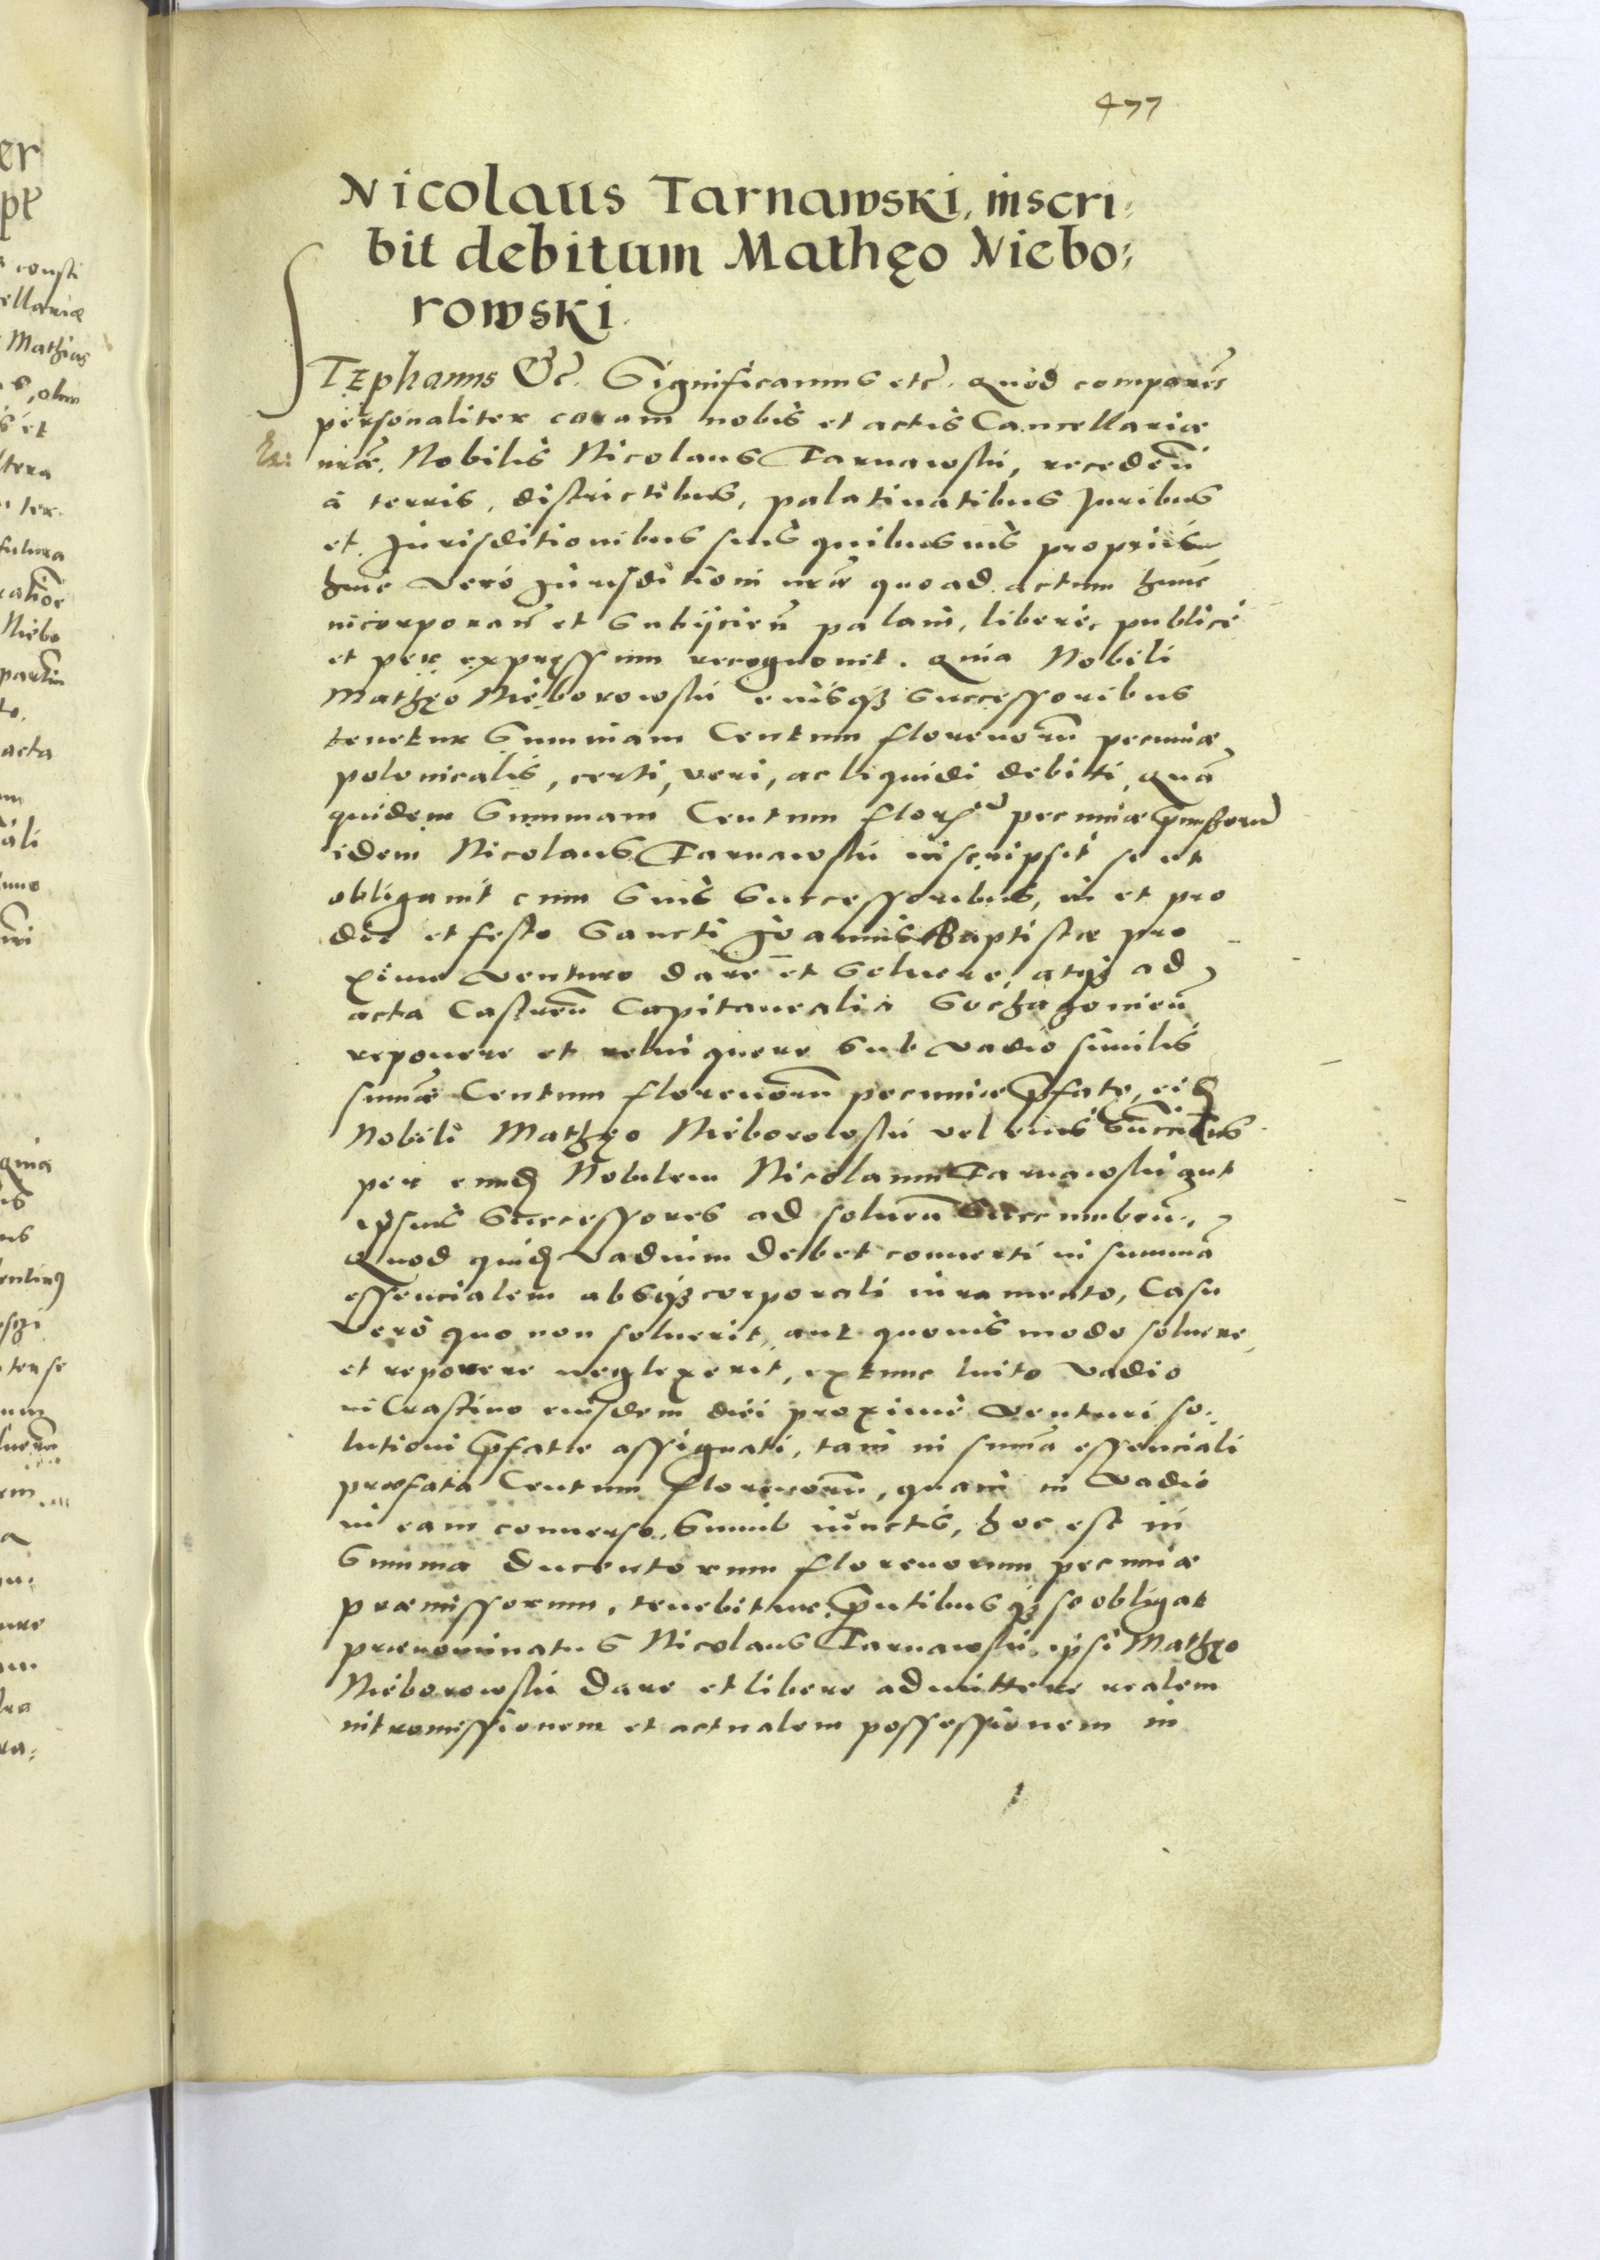 477
Nicolaus Tarnawski, inscri:
bit debitum Mathęo Niebo:
rowski.
STEphanus &c̃. Significamus etc̃. Quod comparẽs
personaliter coram nobis et actis Cancellariæ
nr̃æ, Nobilis Nicolaus Tarnawski, recedeñ
à terris, districtibus, palatinatibus Iuribus
et Iurisditionibus suis quibusuis proprijs
huic verò Iurisditioni nr̃æ quo ad actum hunc
incorporañ et subijcieñ palam, liberè, publicè
et per expręssum recognouit. Quia Nobili
Mathęo Nieborowski eiusq3 successoribus
tenetur Summam Centum florenorũ pecuniæ
polonicalis, certi, veri, ac liquidi debiti, Quã
quidem Summam Centum flor. pecuniæ
idem Nicolaus Tarnawski inscripsit se et
obligauit cum suis Successoribus, in et pro
die et festo Sancti Joannis Baptistæ pro
ximè venturo dare et soluere, atq3 ad
acta Castreñ Capitanealia Sochazouieñ
reponere et relinquere sub vadio similis
summæ Centum florenorũ pecuniæ p̃fatę, eid
Nobili Mathęo Nieborowski vel eius
per eund Nobilem Nicolaum Tarnawski aut
ipsius Successores ad solueñ Succumbeñ.
Quod quid vadium debet conuerti in summã
essencialem absq3 corporali iuramento, Casu
verò quo non soluerit, aut quouis modo soluere
et reponere neglexerit, extunc luito vadio
in Crastino eiusdem diei proximè venturi so:
lutioni p̃fatæ assignati, tam in sum̃a essenciali
præfata Centum florenorũ, quam in vadio
in eam conuerso, Simul iunctis, hoc est in
Summa Ducentorum florenorum pecuniæ
præmissorum, tenebitur, p̃ntibus q3 se obligat
prænominatus Nicolaus Tarnawski ipsi Mathęo
Nieborowski dare et libere admittere realem
intromissionem et actualem possessionem in